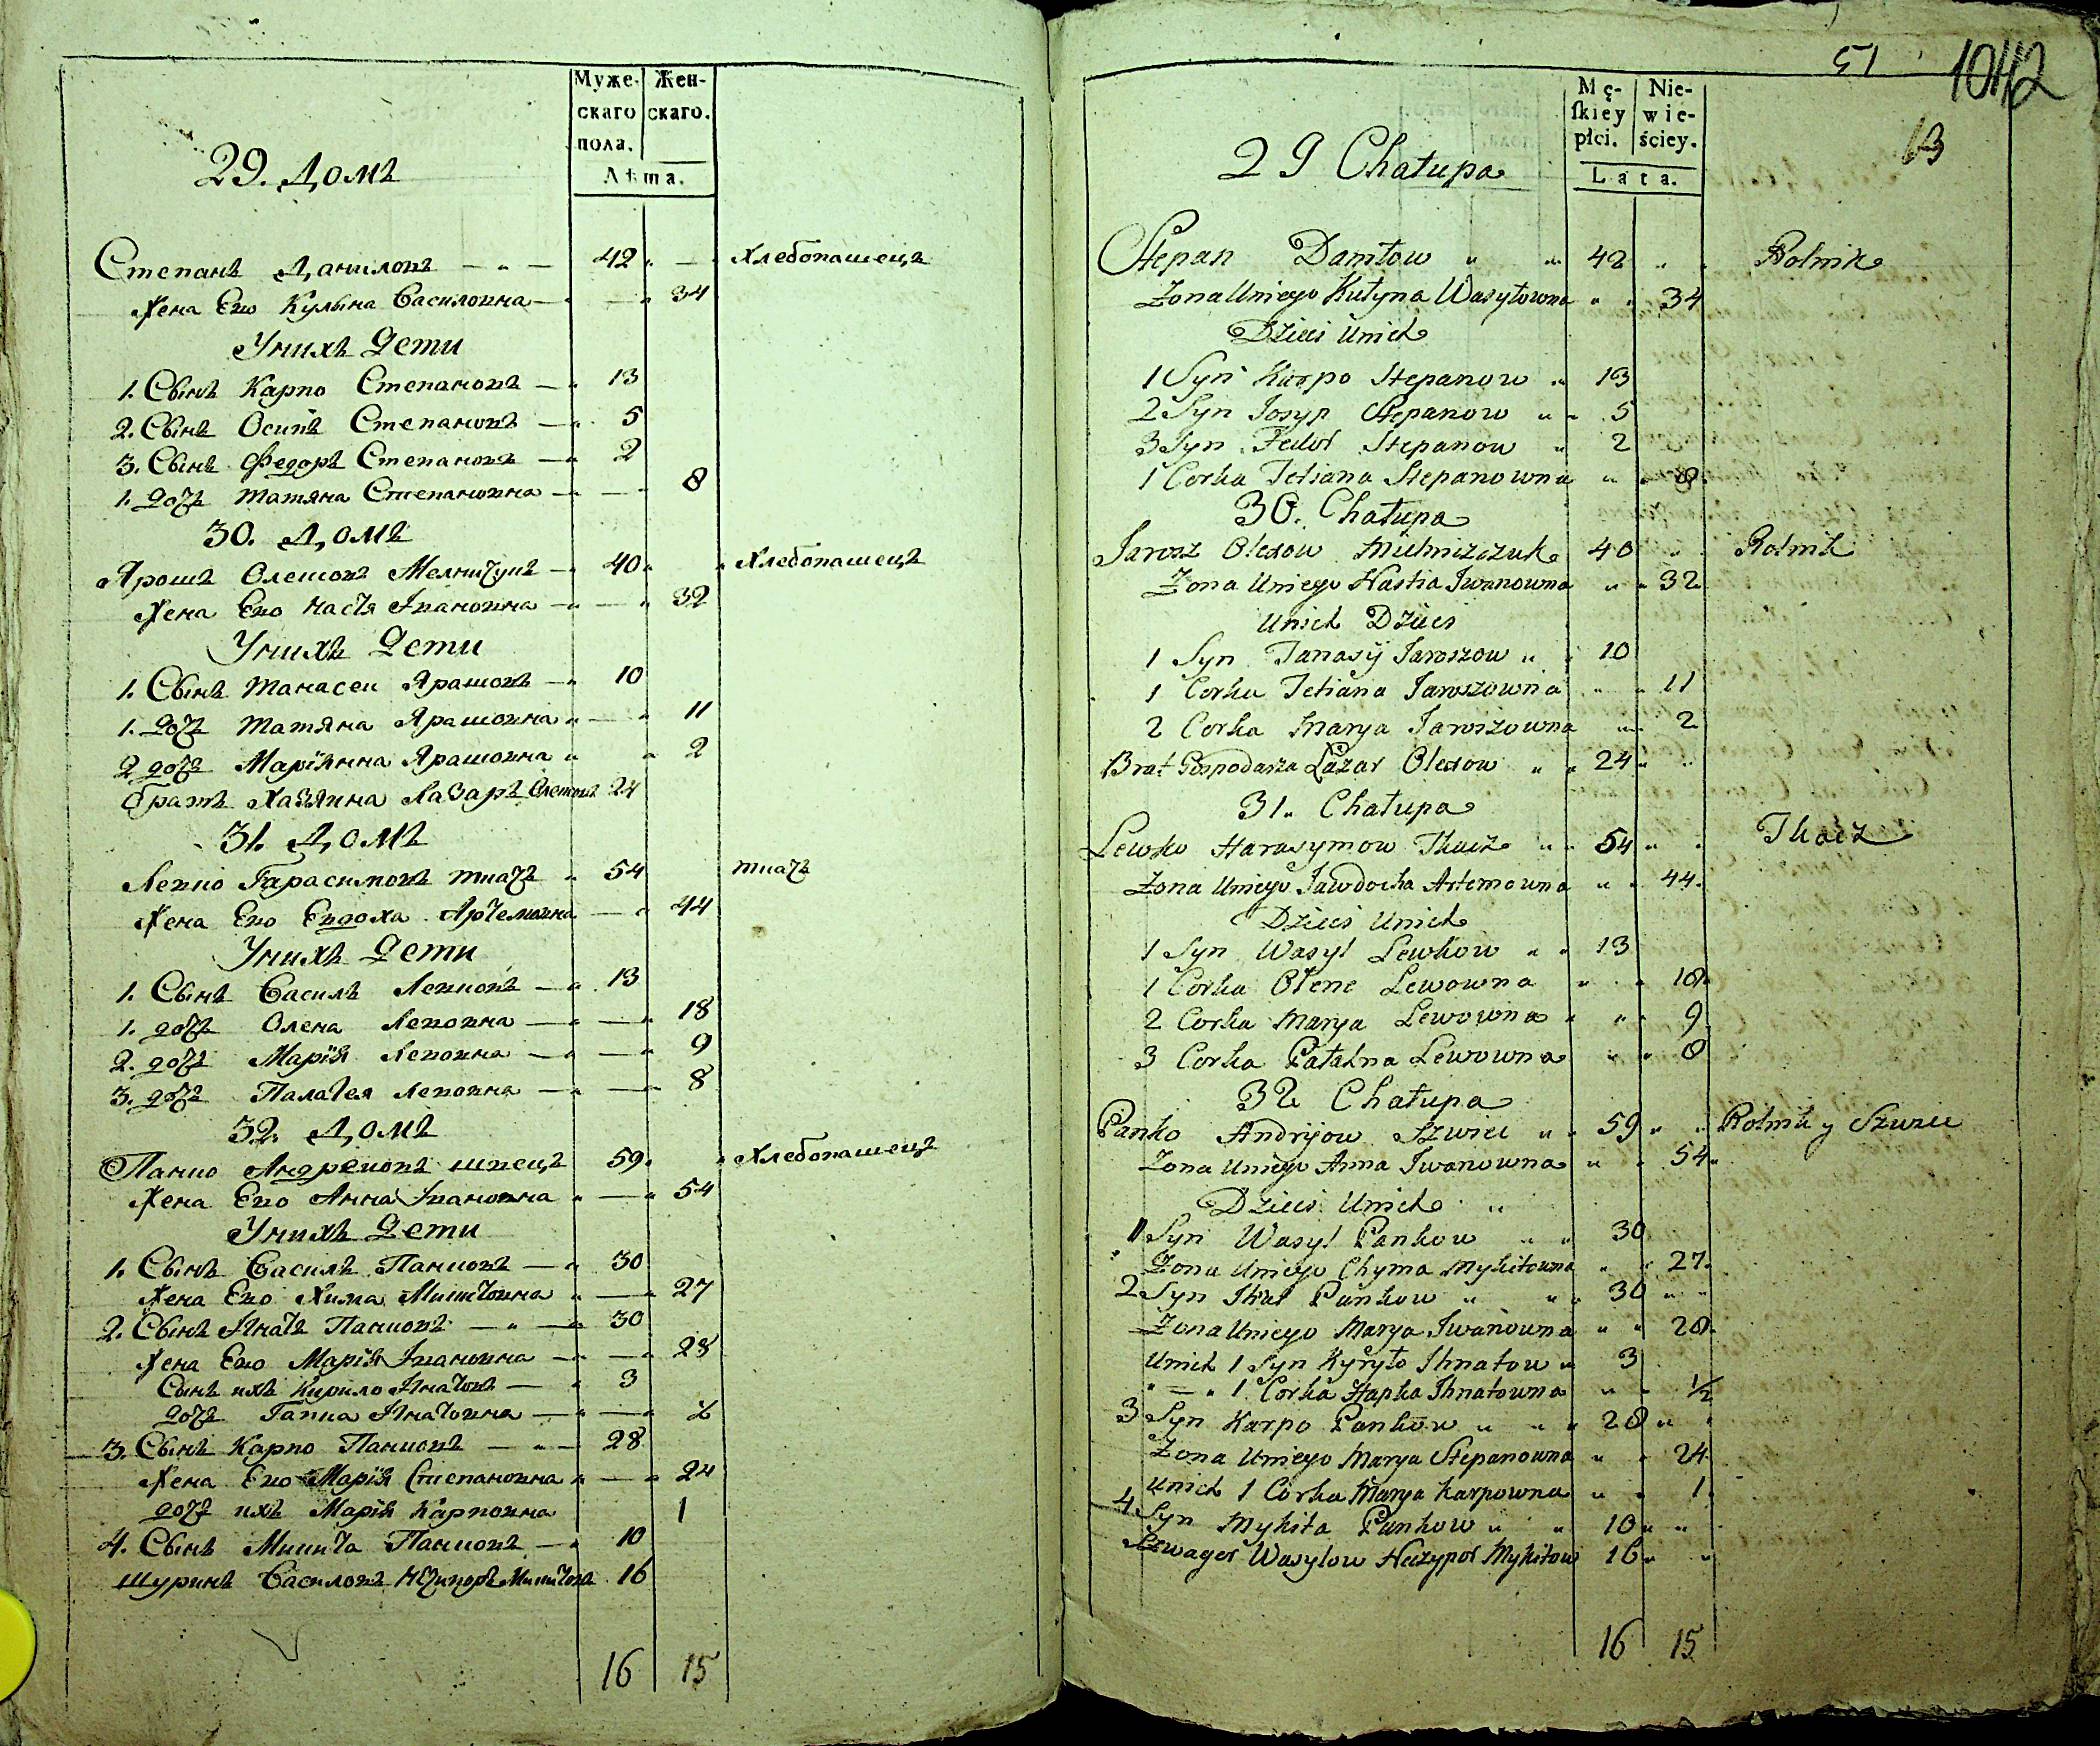 Муже- Жен-
скаго скаго.
пола.
Лѣта.
29. Домъ
Степанъ Даниловъ — „ — 42 „ — Хлебопашецъ
Жена Его Кулына Василовна — „ — „ 34
Унихъ Дети
1. Сынъ Карпо Степановъ — „ 13
2. Сынъ Осипъ Степановъ — „ 5
3. Сынъ Федоръ Степановъ — „ 2
1. дочъ Татяна Степановна — „ — „ 8
30. Домъ
Ярошъ Олешовъ Мелничукъ — „ 40 „ „ Хлебопашецъ
Жена Его Настя Ивановна — „ — „ 32
Унихъ Дети
1. Сынъ Танасеи Ярошовъ — „ 10
1. дочъ Татяна Ярошовна „ — „ 11
2 дочъ Маріянна Ярошовна „ „ 2
братъ Хазяина Лазаръ Олешовъ 24
31. Домъ
Левко Гарасимовъ ткачъ „ 54 ткачъ
Жена Его Евдоха Артемовна — „ 44
Унихъ Дети
1. Сынъ Василь Левковъ — „ 13
1. дочъ Олена Левовна — „ — „ 18
2. дочъ Марія Левовна — „ — „ 9
3. дочъ Палагея Левовна — „ — „ 8
32. Домъ
Панко Андреновъ швецъ 59 „ „ Хлебопашецъ
Жена Его Анна Ивановна „ — „ 54
Унихъ Дети
1. Сынъ Василь Панковъ — „ 30
Жена Его Хима Микитовна „ — „ 27
2. Сынъ Игнатъ Панковъ — „ — 30
Жена Его Марія Ивановна — „ — „ 28
Сынъ ихъ Кирило Игнатовъ — „ 3
дочъ Гапка Игнатовна — „ — „ ½
3. Сынъ Карпо Панковъ — „ — 28
Жена Его Марія Степановна „ — „ 24
дочъ ихъ Марія Карповна 1
4. Сынъ Микита Панковъ — „ 10
шуринъ Василовъ Нечипоръ Микитовъ 16
16 15
51 1042
13
Mę- Nie-
ſkiey wie-
płci. ściey.
Lata.
29 Chałupa
Stepan Daniłow „ „ 42 „ „ Rolnik
Zona Uniego Kułyna Wasyłowna „ „ 34
Dzieci Unich
1 Syn Karpo Stepanow „ 13
2 Syn Josyp Stepanow „ „ 5
3 Syn Fedor Stepanow „ 2
1 Corka Tetiana Stepanowna „ „ 8
30. Chałupa
Jarosz Olexow Mielniczczuk 40 „ Rolnik
Zona Uniego Nastia Iwanowna „ „ 32
Unich Dzieci
1 Syn Tanasij Jaroszow „ „ 10
1 Corka Tetiana Jaroszowna „ „ 11
2 Corka Marya Jaroszowna „ 2
Brat Gospodarza Łazar Olexow „ „ 24 „ „
31. Chałupa
Lewko Harasymow Tkacz „ „ 54 „ „ Tkacz
Zona Uniego Jawdocha Artemowna „ „ 44
Dzieci Unich
1 Syn Wasyl Lewkow „ „ 13
1 Corka Ołene Lewowna „ „ 18
2 Corka Marya Lewowna „ „ „ 9
3 Corka Pałahna Lewowna „ „ 8
32 Chałupa
Panko Andrijow Szwiec „ „ 59 „ „ Rolnik y Szwiec
Zona Uniego Anna Iwanowna „ „ 54 „
Dzieci Unich „
1 Syn Wasyl Pankow „ „ 30
Zona Uniego Chyma Mykitowna „ „ 27
2 Syn Ihnat Pankow „ „ „ 30 „ „
Zona Uniego Marya Iwanowna „ „ 28
Unich 1 Syn Kyryło Ihnatow „ 3
„ — „ 1 Corka Hapka Ihnatowna „ „ ½
3 Syn Karpo Pankow „ „ „ 28 „ „
Zona Uniego Marya Stepanowna „ „ 24
Unich 1 Corka Marya Karpowna „ „ 1
4 Syn Mykita Pankow „ „ 10 „ „
Szwager Wasylow Neczypor Mykitow 16 „ „
16 15